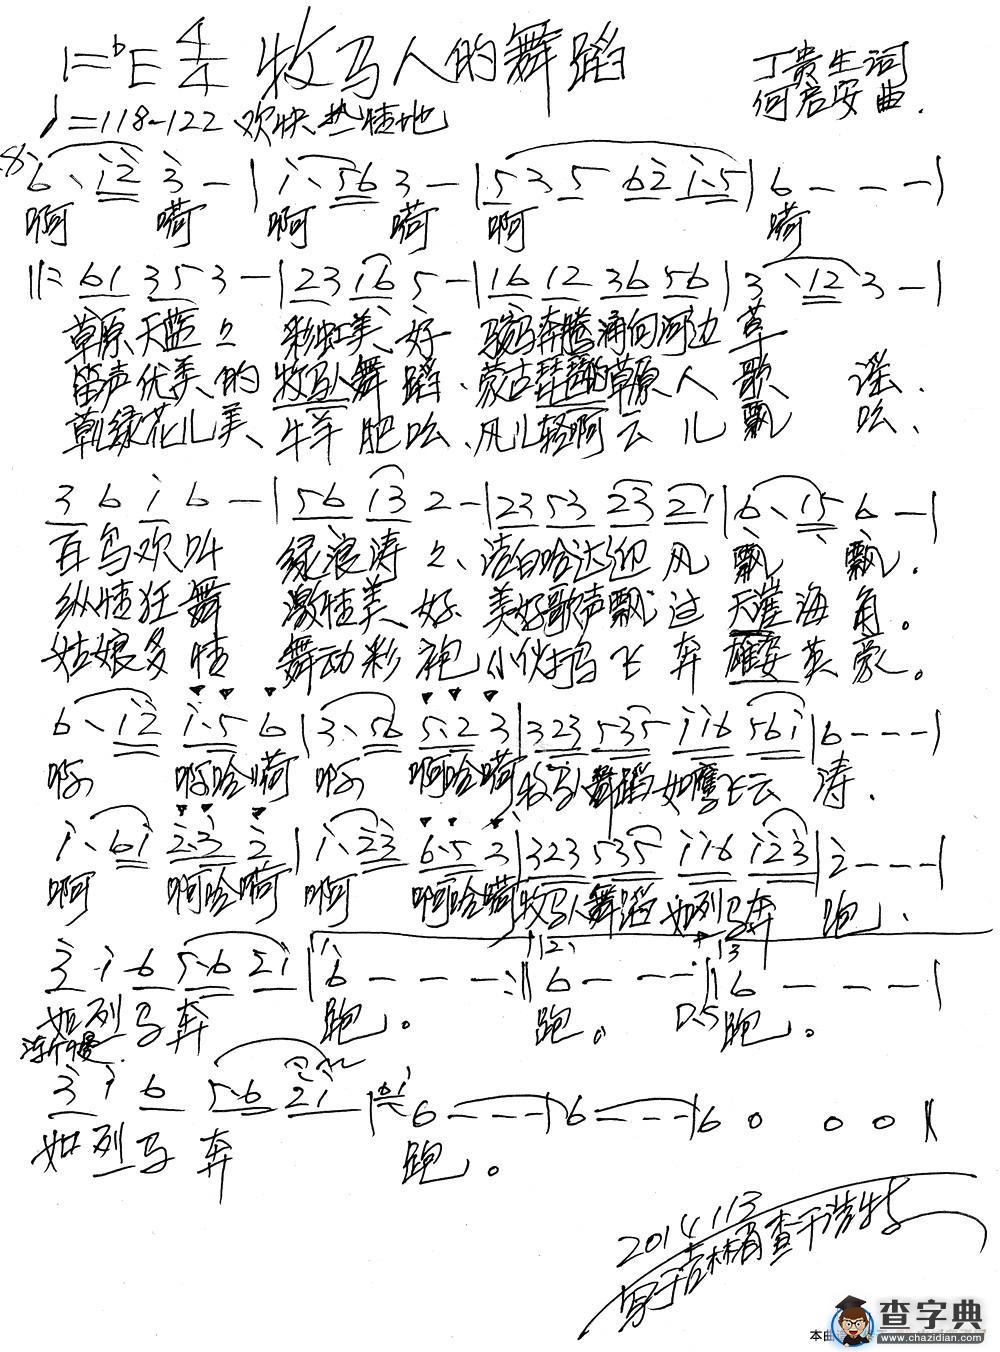 1=♭E 4/4 牧马人的舞蹈
丁贵生词
何启安曲.
♩=118-122 欢快热情地
6、12 3 — | 1、56 3 — | 53 5 62 1.5 | 6 — — — |
啊 嗬 啊 嗬 啊 嗬
61 35 3 — | 23 16 5 — | 16 12 36 56 | 3、12 3 — |
草原天蓝々 彩虹美、好 骏马奔腾涌向河边草
笛声优美的牧马人舞蹈、蒙古琵琶的草原人歌谣、
草儿绿花儿美、牛羊肥吆、风儿轻啊云儿飘吆、
3 6 1 6 — | 56 13 2 — | 23 53 23 21 | 6、15 6 — |
百鸟欢叫 绿浪涛々、洁白哈达迎风飘、飘.
纵情狂舞 激情美、好 美好歌声飘过天涯海角。
姑娘多情 舞动彩袍 小伙打马飞奔雄姿英豪。
6、12 1.5 6 | 3、56 5.2 3 | 323 535 116 561 | 6 — — — |
啊 啊哈嗬 啊 啊哈嗬 牧马人舞蹈如鹰飞云涛.
1、61 2.3 2 | 1、23 6.5 3 | 323 535 116 123 | 2 — — — |
啊 啊哈嗬 啊 啊哈嗬 牧马人舞蹈如列马奔跑、
3 1 6 5.6 21 | 6 — — — :‖ 6 — — — :‖ 6 — — — |
如列马奔 跑。 跑。 D.S 跑。
渐慢
3 1 6 5.6 21 | 6 — — — | 6 — — — | 6 0 0 0 ‖
如列马奔 跑。
2014.1.13
写于吉林省查干浩特
本曲
查字典
www.chazidian.com